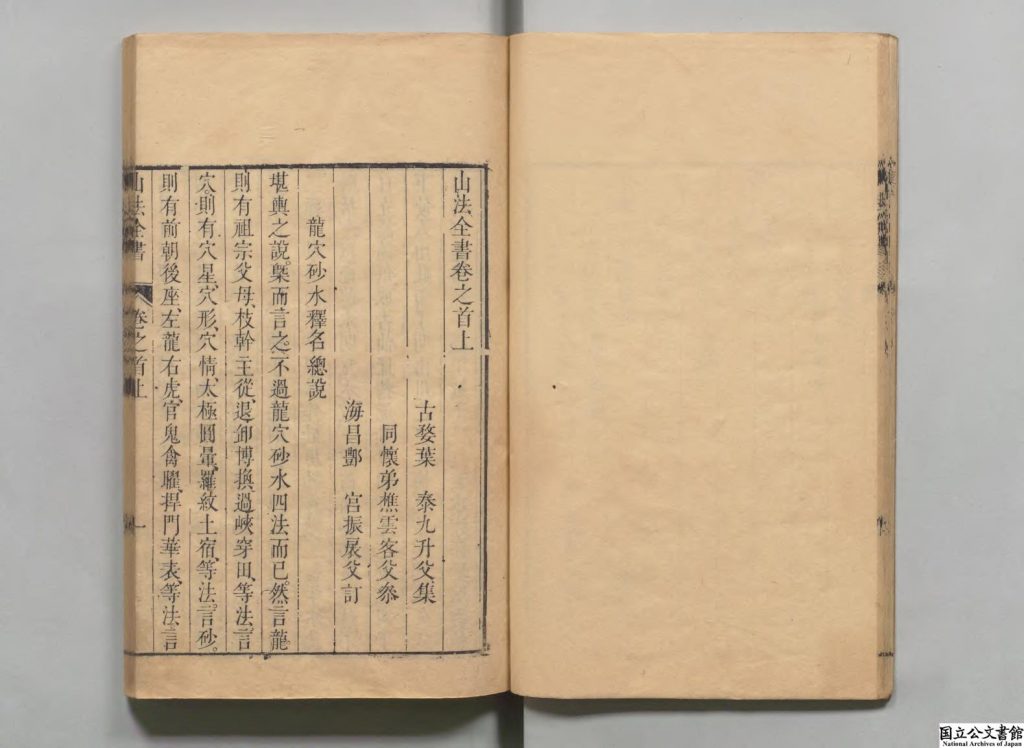 山法全書卷之首上
古婺葉 泰九升父集
同懷弟樵雲客父叅
海昌鄧 宫振宸父訂
龍穴砂水釋名總說
堪輿之說槩而言之不過龍穴砂水四法而已然言龍
則有祖宗父母枝幹主從退卸博換過峽穿田等法言
穴則有穴星穴形穴情太極圓暈羅紋土宿等法言砂
則有前朝後座左龍右虎官鬼禽曜捍門華表等法言
山法全書 卷之首上 一
国立公文書館
National Archives of Japan